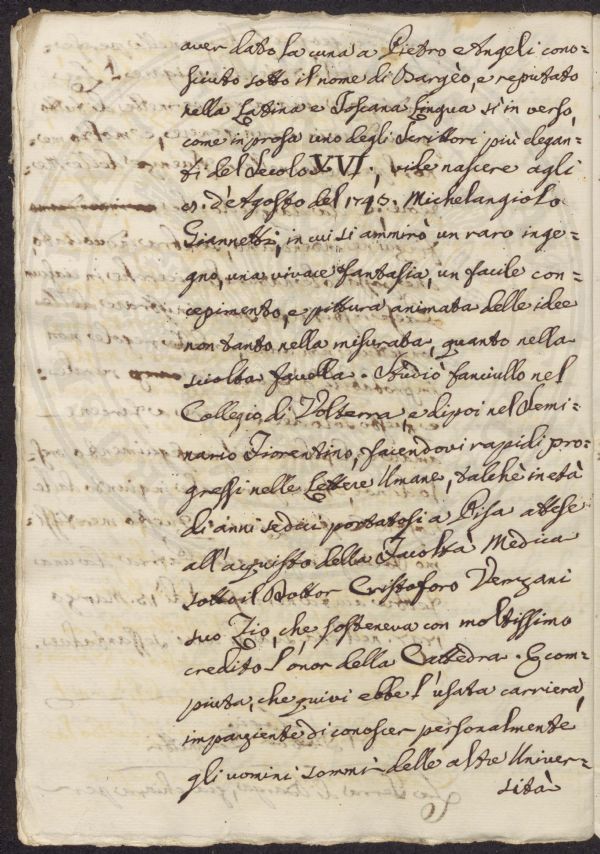 aver dato la cuna a Pietro Angeli cono=
sciuto sotto il nome di Bargèo, e reputato
nella Latina e Toscana Lingua sì in verso,
come in prosa uno degli Scrittori più elegan=
ti del Secolo XVI, vide nascere agli
d'Agosto del 1743. Michelangiolo
Giannetti, in cui si ammirò un raro inge=
gno, una vivace fantasia, un facile con=
cepimento, e pittura animata delle idee
non tanto nella misurata, quanto nella
sciolta favella. Studiò fanciullo nel
Collegio di Volterra, e dipoi nel Semi=
nario Fiorentino, facendovi rapidi pro=
gressi nelle Lettere Umane, talchè in età
di anni sedici portatosi a Pisa attese
all'acquisto della Facoltà Medica
sotto il Dottor Cristoforo Verzani
suo Zio, che sosteneva con moltissimo
credito l'onor della Cattedra. E com=
piuta, che quivi ebbe l'usata carriera,
impaziente di conoscer personalmente
gli uomini sommi delle altre Univer=
sità